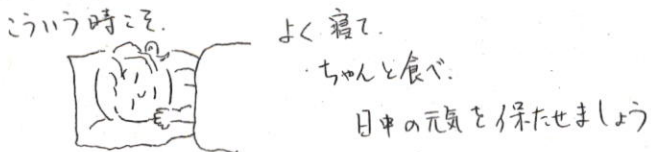 こういう時こそ.
よく寝て.
ちゃんと食べ.
日中の元気を保たせましょう